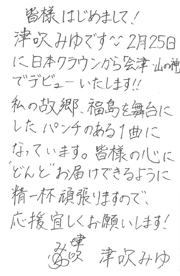 皆様はじめまして!
津吹みゆです〜 2月25日
に日本クラウンから会津・山の神
でデビューいたします!!
私の故郷、福島を舞台に
したパンチのある1曲に
なっています。皆様の心に
"どんと"お届けできるように
精一杯頑張りますので、
応援宜しくお願いします!
津吹みゆ